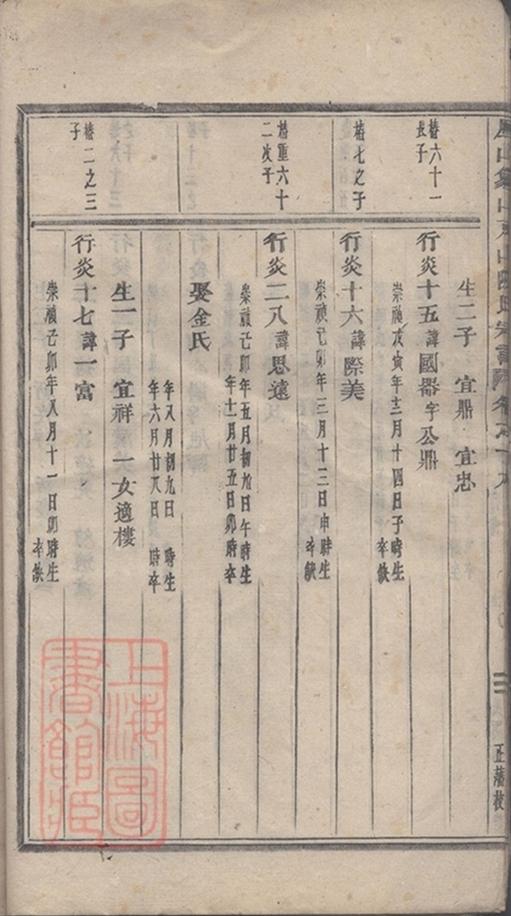 正蕩枝
生二子 宜鼎 宜忠
椿六十一
長子
行炎十五諱國器字公鼎
崇禎戊寅年十二月十四日子時生
卒缺
椿七之子
行炎十六諱際美
崇禎己卯年三月十三日申時生
卒缺
椿重六十
二次子
行炎二八諱思遠
崇禎己卯年五月初九日午時生
年十二月廿五日卯時卒
娶金氏
年八月初九日 時生
年六月廿八日 時卒
生一子 宜祥 一女適樓
椿二之三
子
行炎十七諱一富
崇禎己卯年八月十一日卯時生
卒缺
上海圖
書館藏